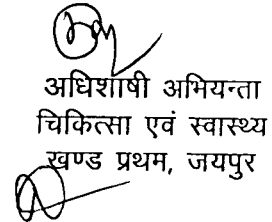 अधिशाषी अभियन्ता
चिकित्सा एवं स्वास्थ्य
खण्ड प्रथम, जयपुर